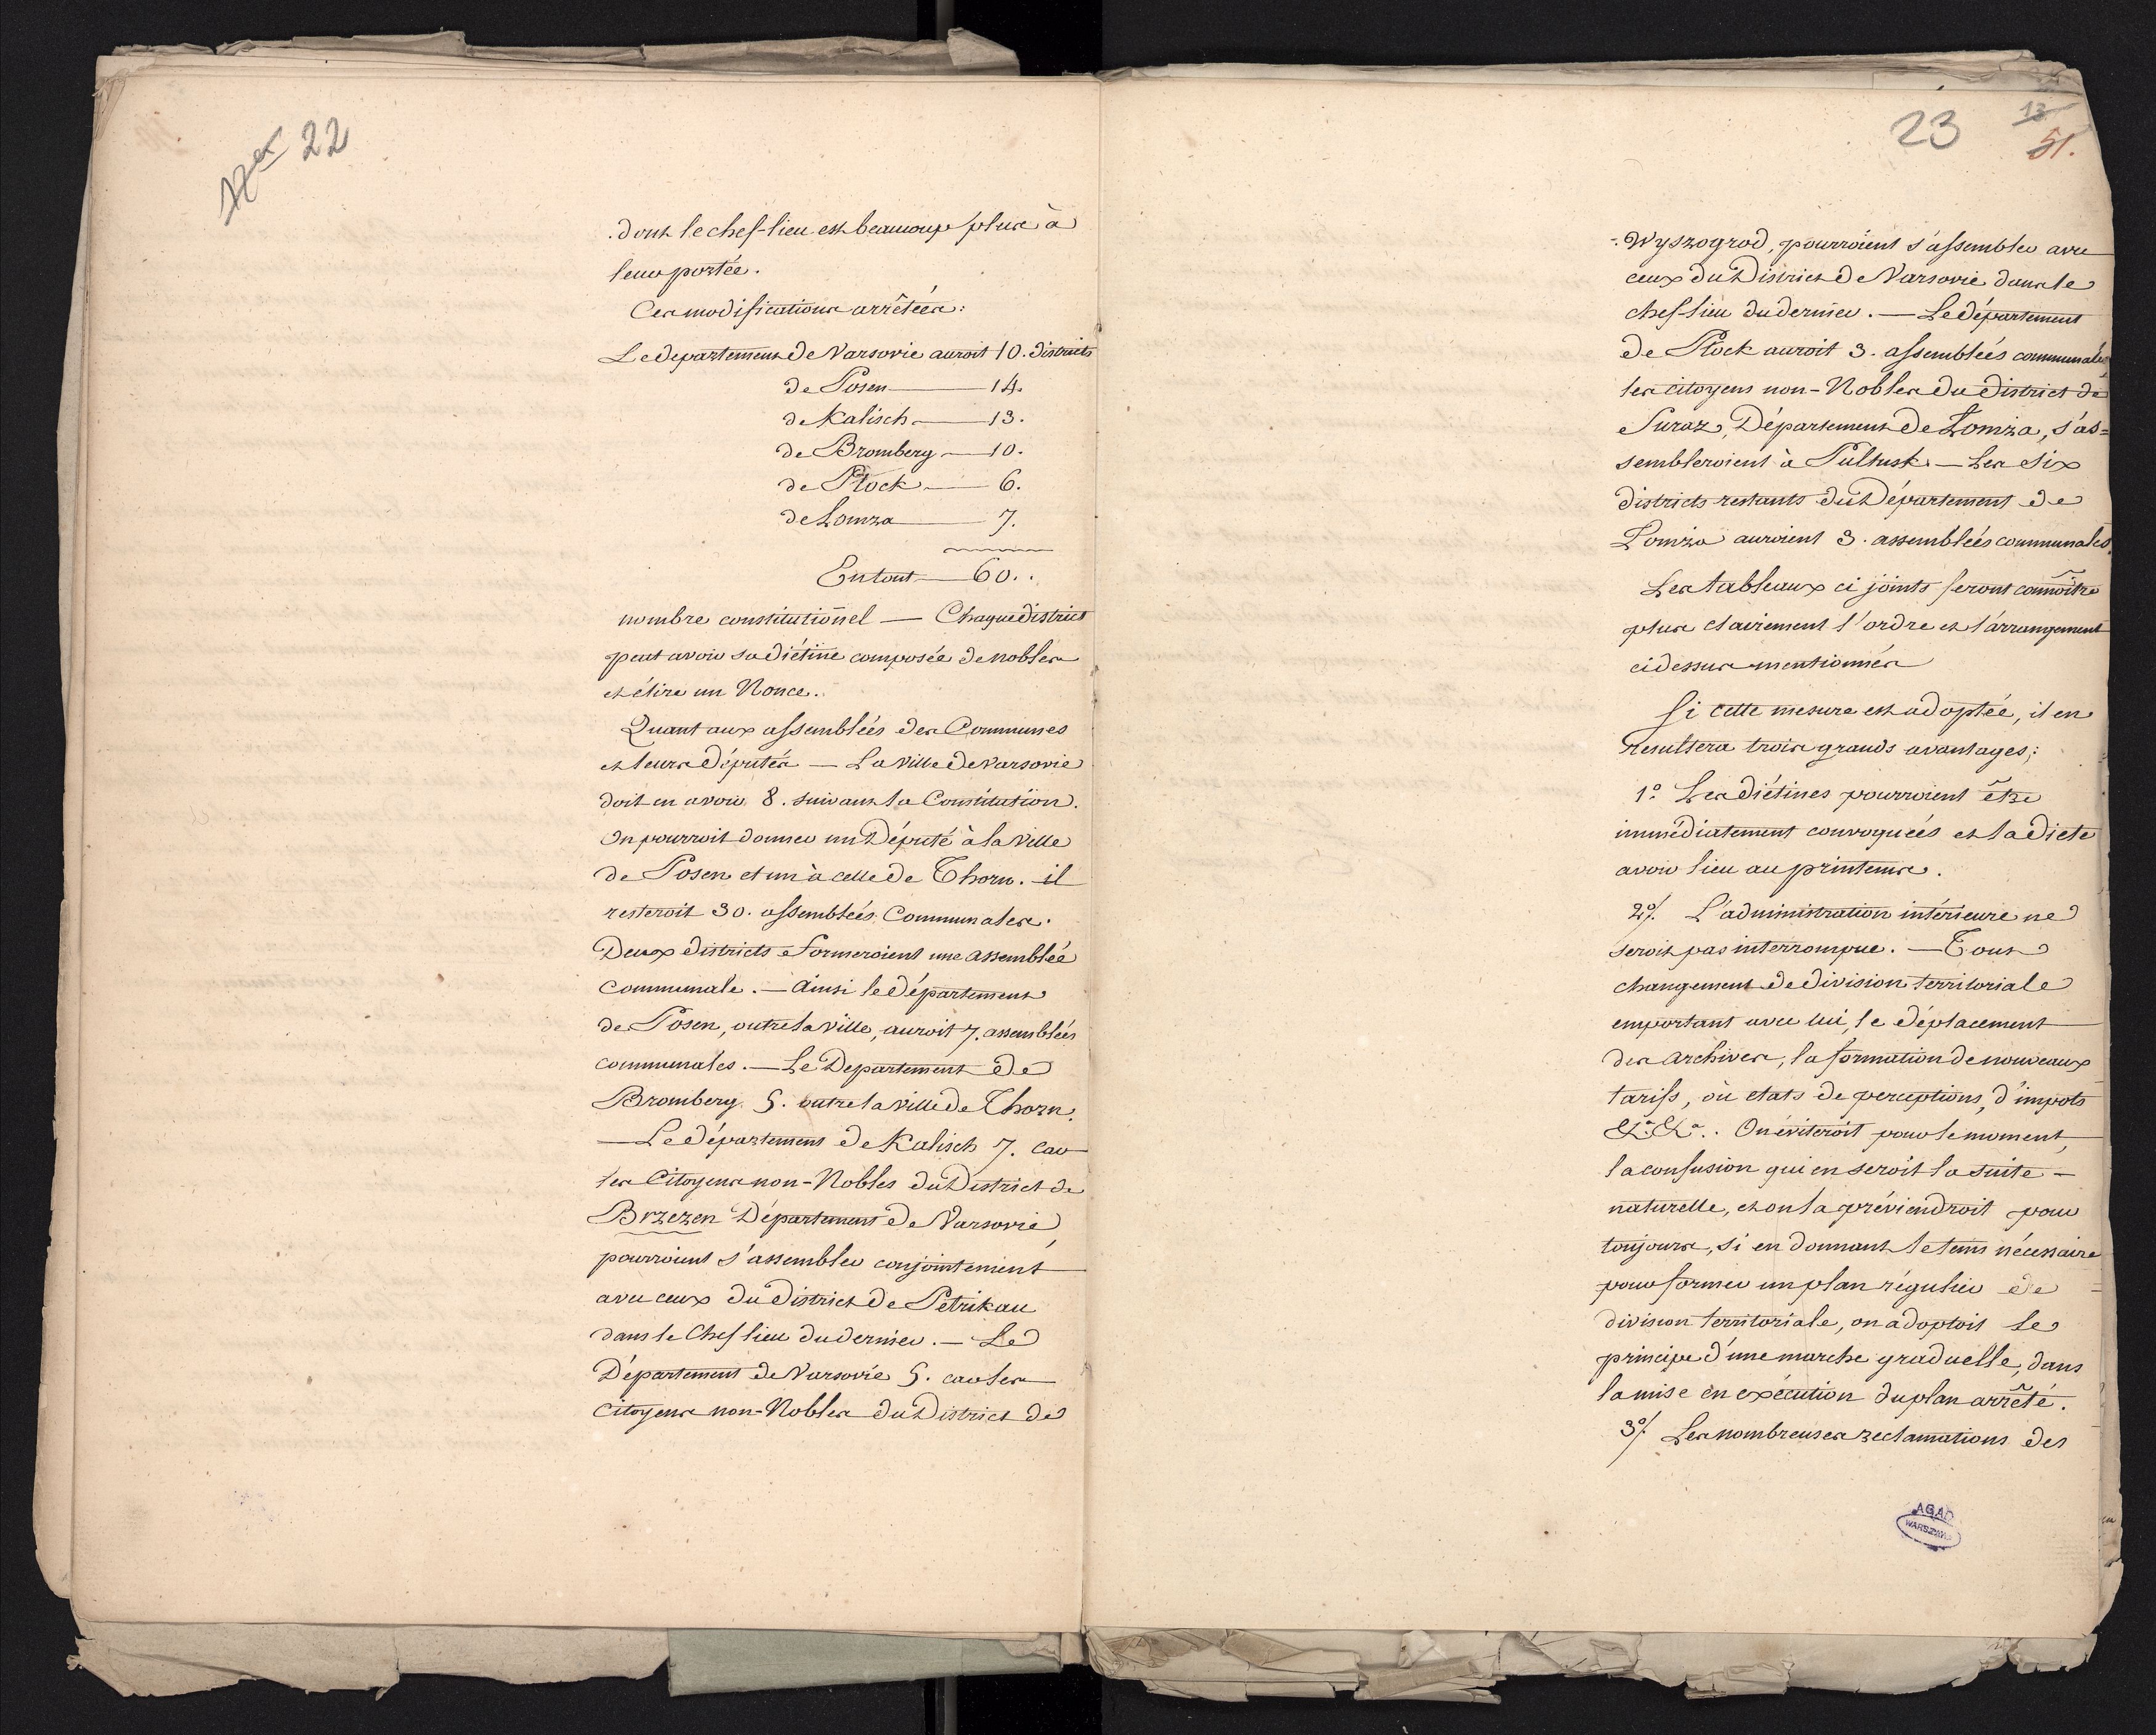 22
dont le chef-lieu est beaucoup plus à
leur portée.
Ces modifications arrêtées:
Le departement de Varsovie auroit 10. districts
de Posen — 14.
de Kalisch — 13.
de Bromberg — 10.
de Plock — 6.
de Lomza — 7.
En tout — 60.
nombre constitutioñel — Chaque district
peut avoir sa diétine composée de nobles
et élire un Nonce.
Quant aux assemblées des Communes
et leurs députés — La Ville de Varsovie
doit en avoir 8. suivant la Constitution.
On pourroit donner un Député à la Ville
de Posen et un à celle de Thorn. il
resteroit 30. assemblées Communales.
Deux districts formeroient une assemblée
Communale. — Ainsi le département
de Posen, outre la ville, auroit 7. assemblées
communales. — Le Departement de
Bromberg 5. outre la ville de Thorn.
— Le département de Kalisch 7. car
les Citoyens non-Nobles du District de
Brzezen Département de Varsovie,
pourroient s'assembler conjointement
avec ceux du District de Petrikau
dans le Chef lieu du dernier. — Le
Département de Varsovie 5. car les
Citoyens non-Nobles du District de
23
13
51.
Wyszogrod, pourroient s'assembler avec
ceux du District de Varsovie dans le
chef-lieu du dernier. — Le département
de Plock auroit 3. assemblées communales,
les citoyens non-Nobles du district de
Suraz, Département de Lomza, s'as=
sembleroient à Pultusk — Les six
districts restants du Département de
Lomza auroient 3. assemblées communales.
Les tableaux ci joints feront connoître
plus clairement l'ordre et l'arrangement
ci dessus mentionnés
Si cette mesure est adoptée, il en
resultera trois grands avantages;
1º Les diétines pourroient être
immédiatement convoquées et la diete
avoir lieu au printems.
2º/. L'administration intérieure ne
seroit pas interrompue. — Tout
changement de division territoriale
emportant avec lui, le déplacement
des archives, la formation de nouveaux
tarifs, où etats de perceptions, d'impots
&ª. &ª. On éviteroit pour le moment,
la confusion qui en seroit la suite —
naturelle, et on la préviendroit pour
toujours, si en donnant le tems nécessaire
pour former un plan régulier de
division territoriale, on adoptoit le
principe d'une marche graduelle, dans
la mise en exécution du plan arrêté.
3º/. Les nombreuses reclamations des
AGAD
WARSZAWA